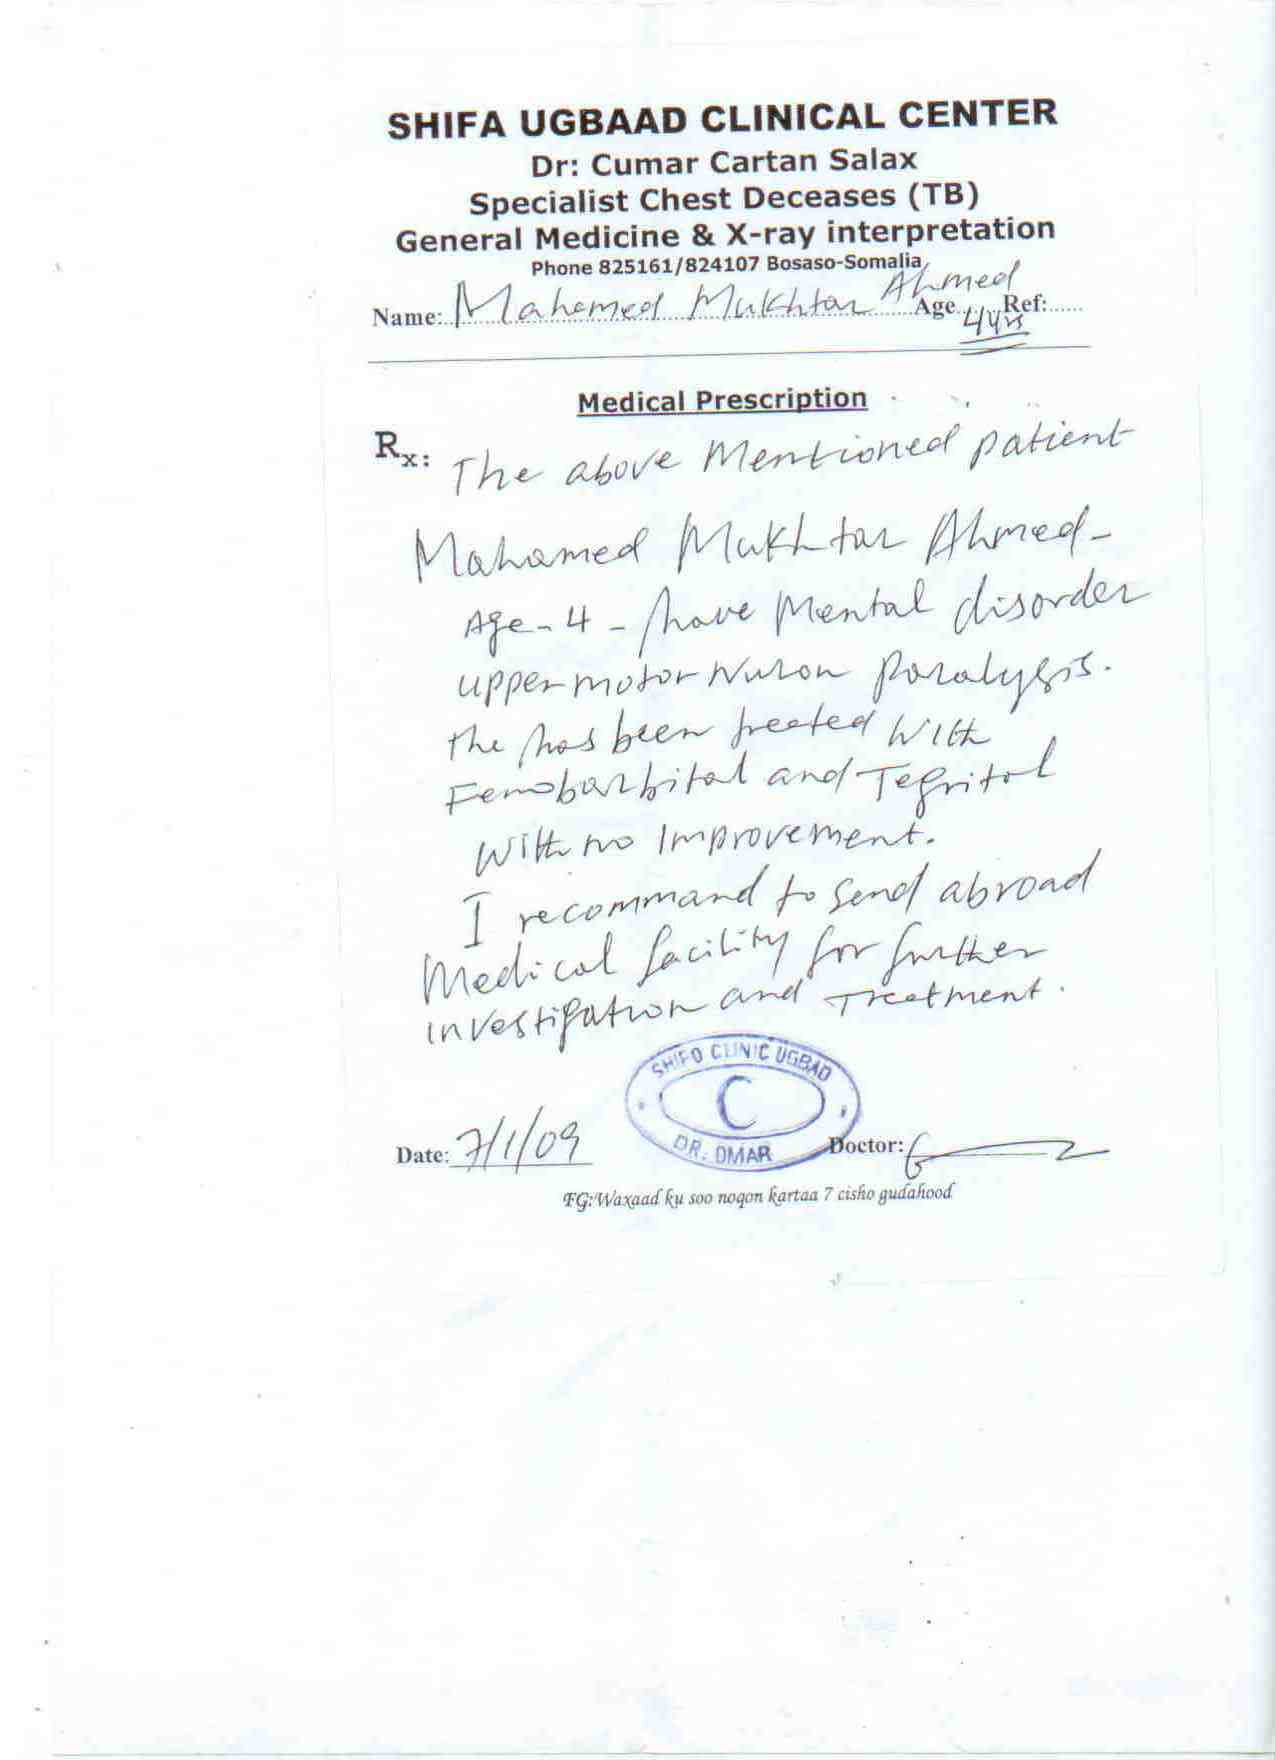 SHIFA UGBAAD CLINICAL CENTER
Dr: Cumar Cartan Salax
Specialist Chest Deceases (TB)
General Medicine & X-ray interpretation
Phone 825161/824107 Bosaso-Somalia
Name: Mahamed Mukhtar Ahmed Age 4yrs Ref:
Medical Prescription
Rx: The above Mentioned patient
Mahamed Mukhtar Ahmed-
Age-4- have Mental disorder
upper motor Nuron paralysis.
the has been treated with
Fenobarbital and Tegritol
With no Improvement.
I recommand to send abroad
Medical facility for further
investigation and Treetment.
SHIFO CLINIC UGBAD
C
DR. OMAR
Date: 7/1/09 Doctor:
FG:Waxaad ku soo noqon kartaa 7 cisho gudahood